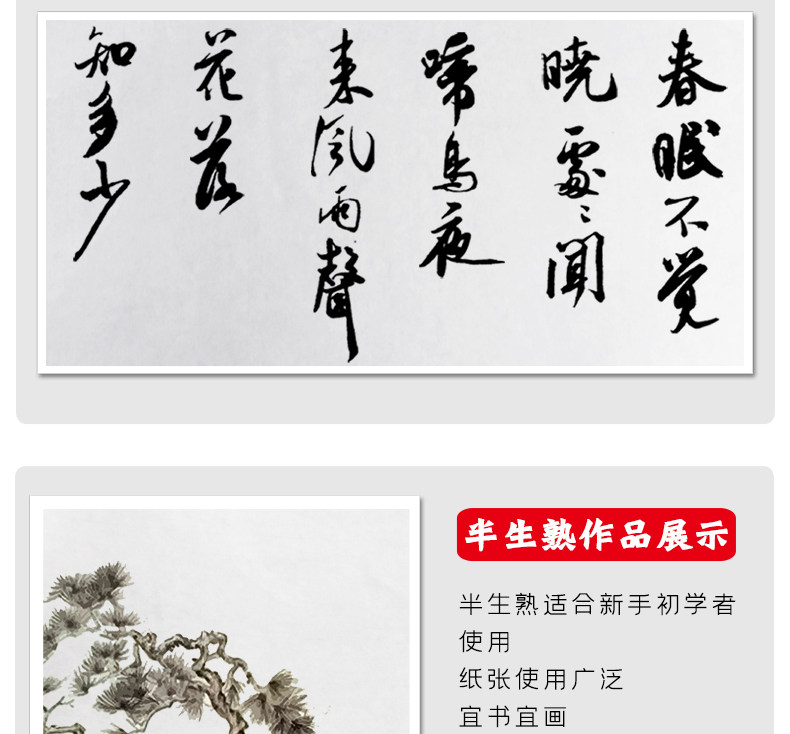 春眠不觉
晓處々聞
啼鳥夜
来風雨聲
花落
知多少
半生熟作品展示
半生熟适合新手初学者
使用
纸张使用广泛
宜书宜画